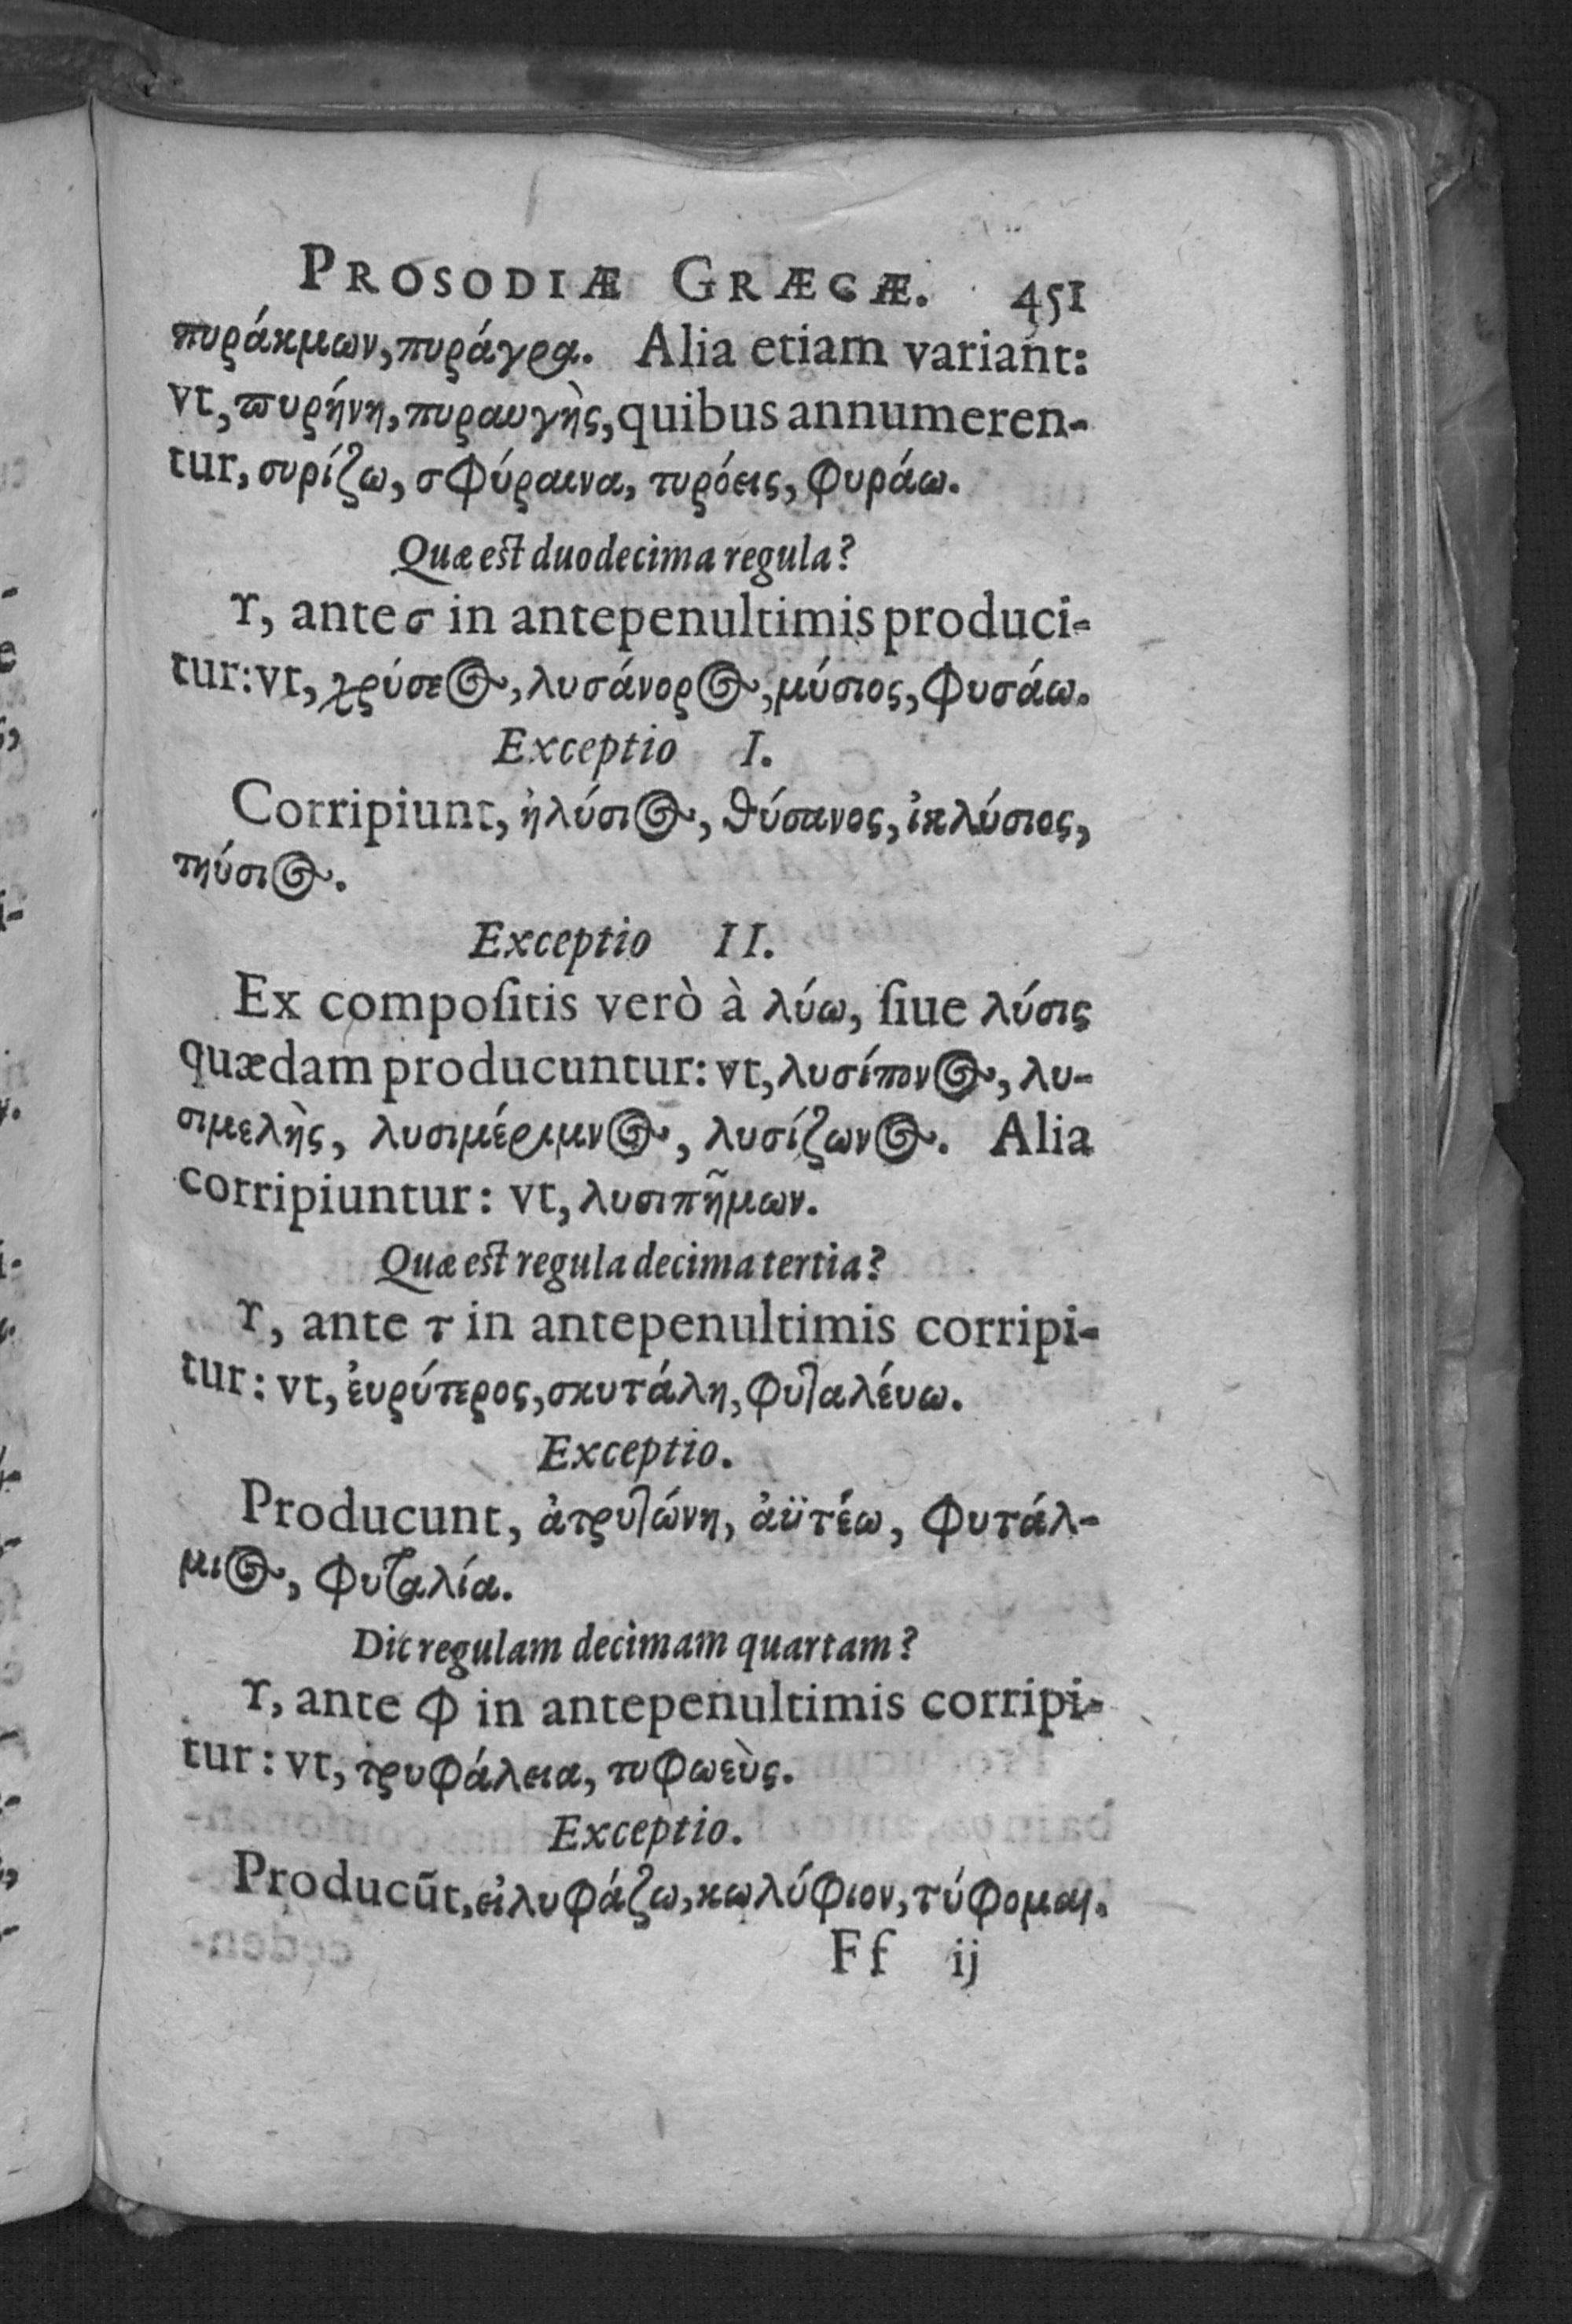 PROSODIÆ GRÆCÆ. 451
πυράκμων, πυράγρα. Alia etiam variant:
vt, πυρήνη, πυραυγὴς, quibus annumeren-
tur, συρίζω, σφύραινα, τυρόεις, φυράω.
Quæ est duodecima regula?
Υ, ante σ in antepenultimis produci-
tur: vt, χρύσεος, λυσάνορος, μύσιος, φυσάω.
Exceptio I.
Corripiunt, ἠλύσιος, θύσανος, ἐκλύσιος,
τηύσιος.
Exceptio II.
Ex compoſitis verò à λύω, ſiue λύσις
quædam producuntur: vt, λυσίπονος, λυ-
σιμελὴς, λυσιμέριμνος, λυσίζωνος. Alia
corripiuntur: vt, λυσιπῆμων.
Quæ est regula decima tertia?
Υ, ante τ in antepenultimis corripi-
tur: vt, ἐυρύτερος, σκυτάλη, φυταλέυω.
Exceptio.
Producunt, ἀτρυτώνη, ἀϋτέω, φυτάλ-
μιος, φυταλία.
Dic regulam decimam quartam?
Υ, ante φ in antepenultimis corripi-
tur: vt, τρυφάλεια, τυφωεὺς.
Exceptio.
Producūt, εἰλυφάζω, κωλύφιον, τύφομαι.
Ff ij